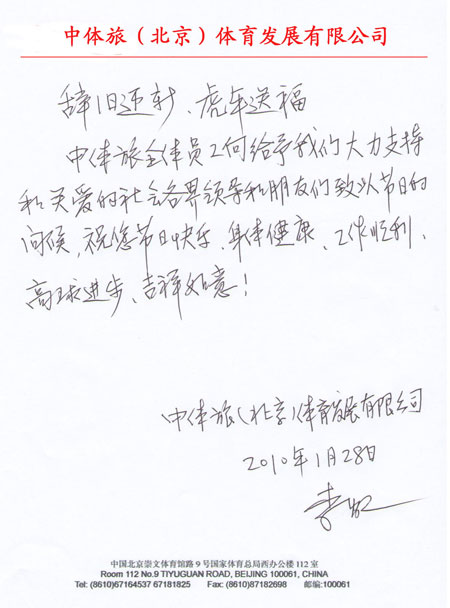 中体旅（北京）体育发展有限公司
辞旧迎新、虎年送福
中体旅全体员工向给予我们大力支持
和关爱的社会各界领导和朋友们致以节日的
问候，祝您节日快乐、身体健康、工作顺利、
高球进步、吉祥如意！
中体旅（北京）体育发展有限公司
2010年1月28日
中国北京崇文体育馆路9号国家体育总局西办公楼112室
Room 112 No.9 TIYUGUAN ROAD, BEIJING 100061, CHINA
Tel: (8610)67164537 67181825 Fax: (8610)87182698 邮编:100061